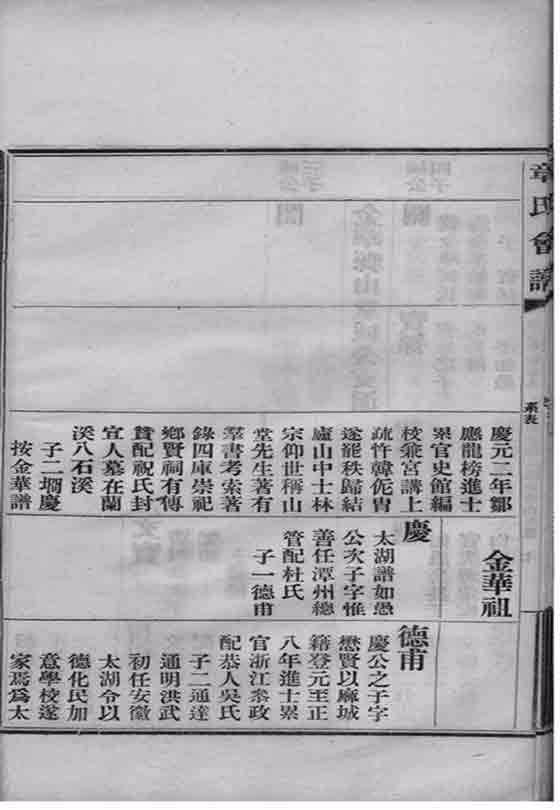 章氏會譜
系表
慶元二年鄒
應龍榜進士
累官史館編
校兼宮講上
疏忤韓侂胄
遂罷秩歸結
廬山中士林
宗仰世稱山
堂先生著有
羣書考索著
錄四庫崇祀
鄉賢祠有傳
贊配祝氏封
宜人墓在蘭
溪八石溪
子二墹慶
按金華譜
金華祖
慶
太湖譜如愚
公次子字惟
善任潭州總
管配杜氏
子一德甫
德甫
慶公之子字
懋賢以麻城
籍登元至正
八年進士累
官浙江叅政
配恭人吳氏
子二通達
通明洪武
初任安徽
太湖令以
德化民加
意學校遂
家焉爲太